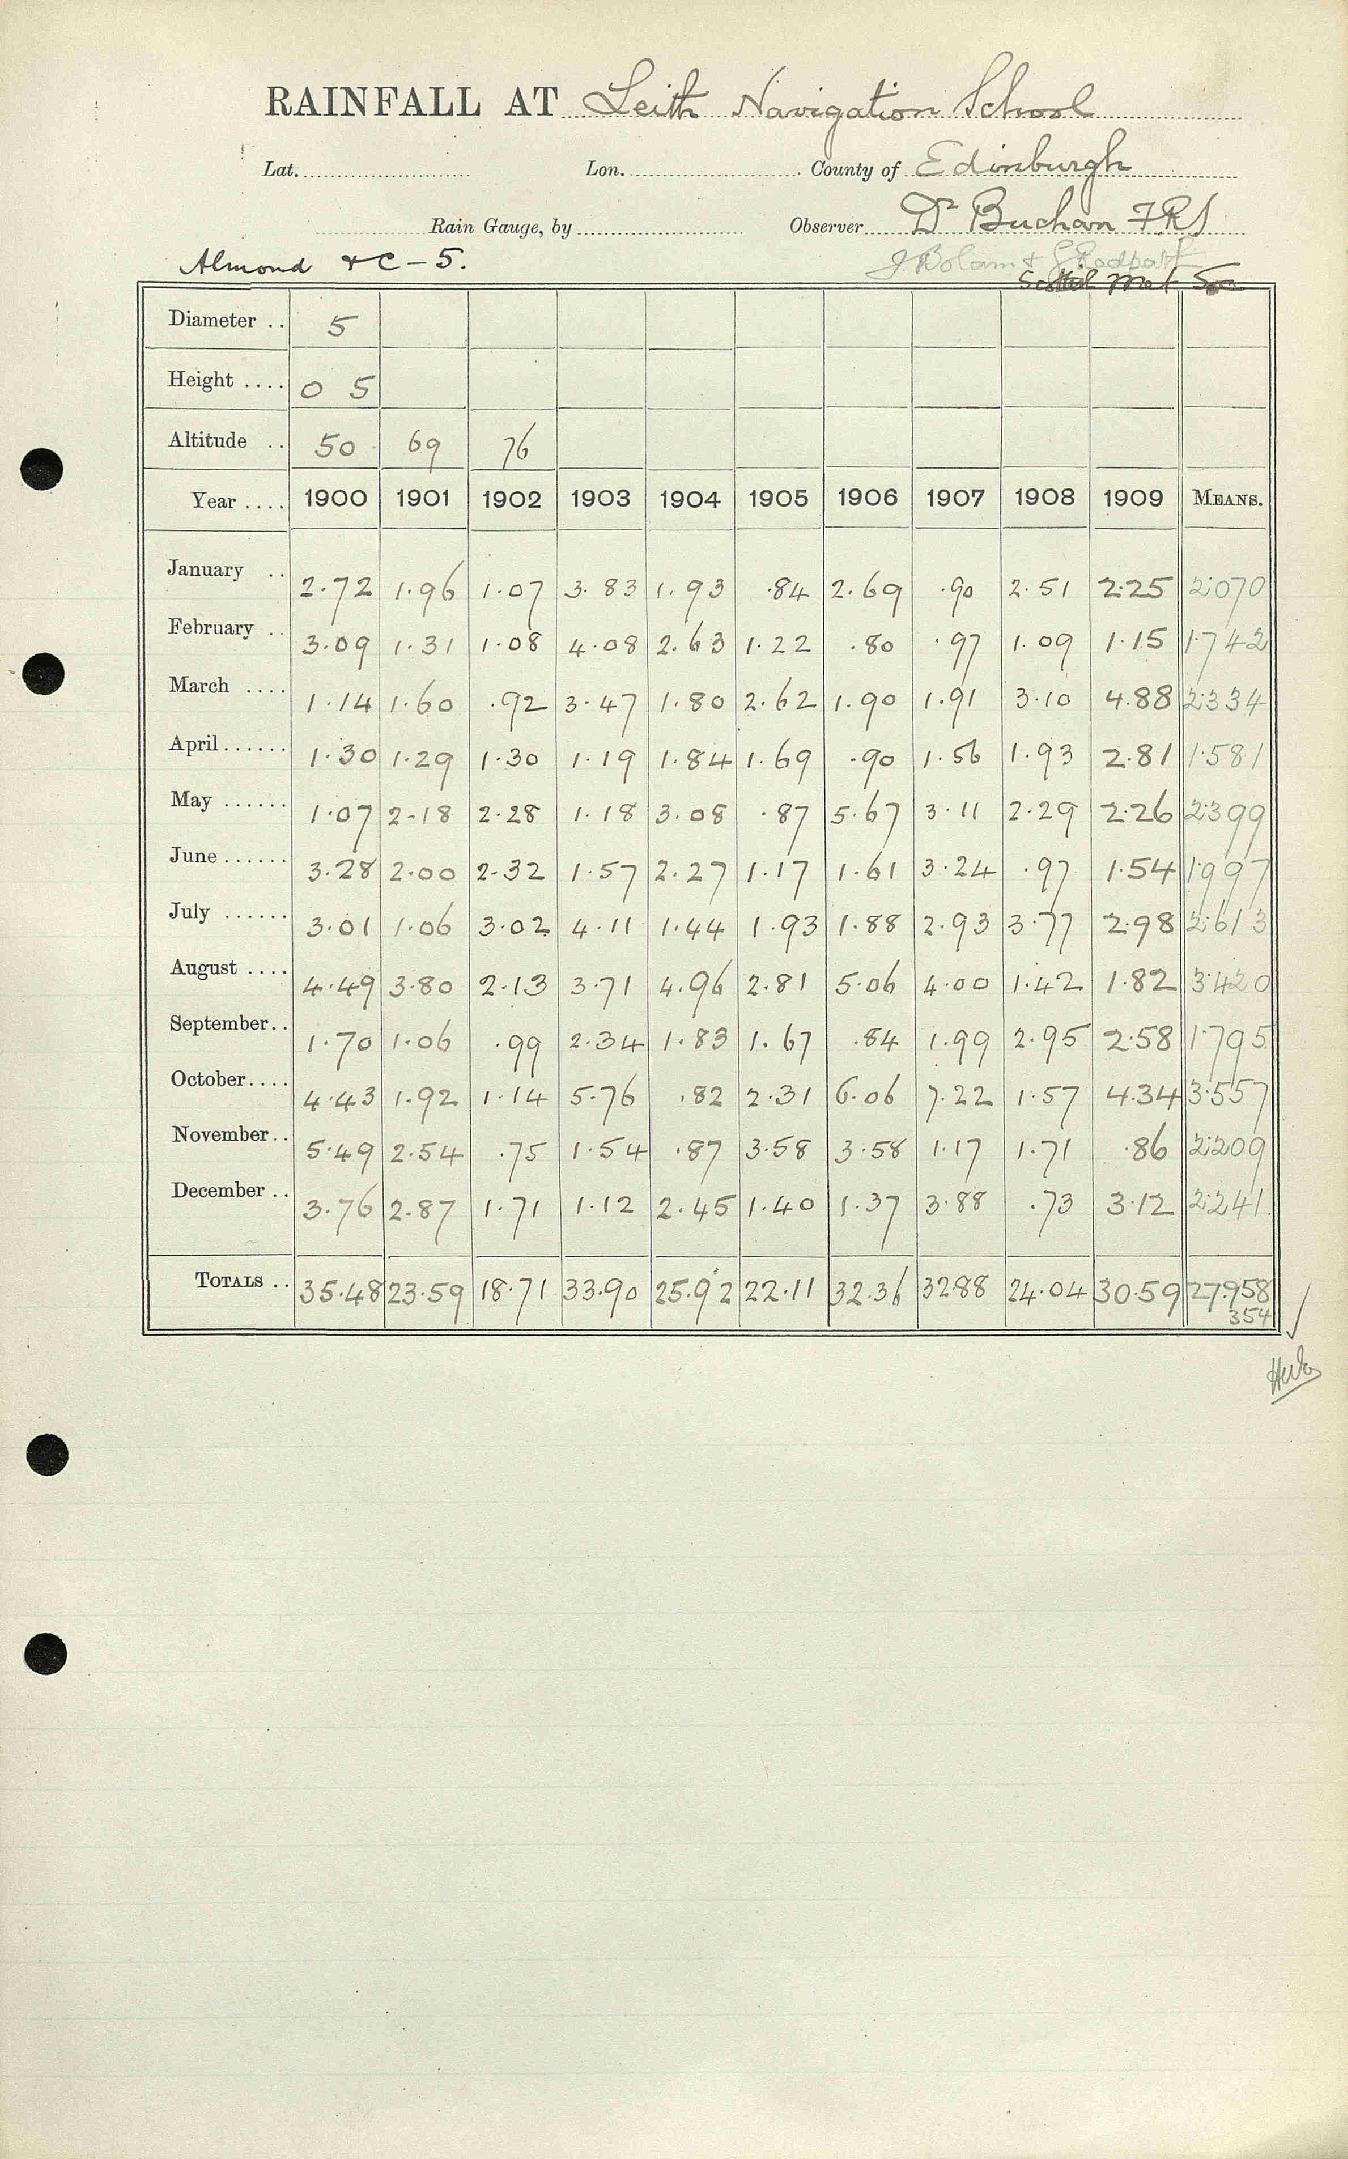 RAINFALL AT Leith Navigation School
Lat. Lon. County of Edinburgh
Rain Gauge, by Observer Dr Buchan F.R.S
Almond &c - 5. J Bolam &
Scottish Met Soc
Diameter .. 5
Height .... 0 5
Altitude .. 50 69 76
Year .... 1900 1901 1902 1903 1904 1905 1906 1907 1908 1909 MEANS.
January .. 2.72 1.96 1.07 3.83 1.93 .84 2.69 .90 2.51 2.25 2.070
February .. 3.09 1.31 1.08 4.08 2.63 1.22 .80 .97 1.09 1.15 1.742
March .... 1.14 1.60 .92 3.47 1.80 2.62 1.90 1.91 3.10 4.88 2.334
April...... 1.30 1.29 1.30 1.19 1.84 1.69 .90 1.56 1.93 2.81 1.581
May ...... 1.07 2.18 2.28 1.18 3.08 .87 5.67 3.11 2.29 2.26 2.399
June ...... 3.28 2.00 2.32 1.57 2.27 1.17 1.61 3.24 .97 1.54 1.997
July ...... 3.01 1.06 3.02 4.11 1.44 1.93 1.88 2.93 3.77 2.98 2.613
August .... 4.49 3.80 2.13 3.71 4.96 2.81 5.06 4.00 1.42 1.82 3.420
September.. 1.70 1.06 .99 2.34 1.83 1.67 .84 1.99 2.95 2.58 1.795
October.... 4.43 1.92 1.14 5.76 .82 2.31 6.06 7.22 1.57 4.34 3.557
November.. 5.49 2.54 .75 1.54 .87 3.58 3.58 1.17 1.71 .86 2.209
December .. 3.76 2.87 1.71 1.12 2.45 1.40 1.37 3.88 .73 3.12 2.241
TOTALS .. 35.48 23.59 18.71 33.90 25.92 22.11 32.36 32.88 24.04 30.59 27.958
354